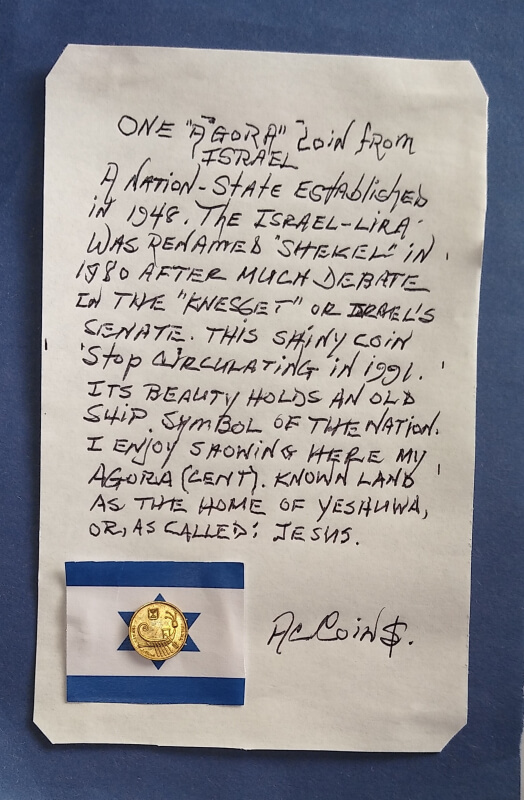 ONE "AGORA" COIN from
ISRAEL
A NATION-STATE ESTABLISHED
IN 1948. THE ISRAEL-LIRA
WAS RENAMED "SHEKEL" IN
1980 AFTER MUCH DEBATE
IN THE "KNESSET" OR ISRAEL'S
SENATE. THIS SHINY COIN
STOP CIRCULATING IN 1991.
ITS BEAUTY HOLDS AN OLD
SHIP. SYMBOL OF THE NATION.
I ENJOY SHOWING HERE MY
AGORA (CENT). KNOWN LAND
AS THE HOME OF YESHUWA,
OR, AS CALLED: JESUS.
AcCoin$.